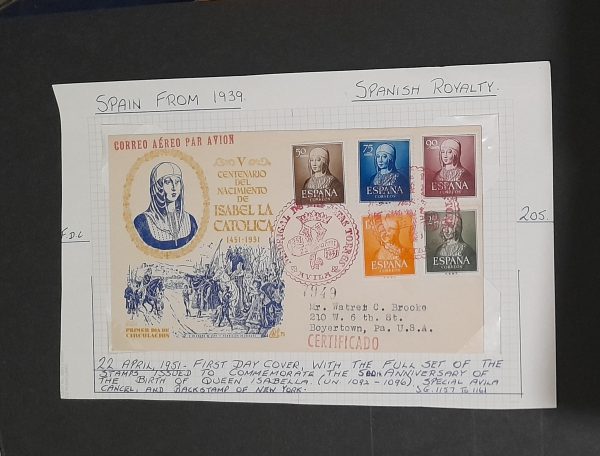 SPAIN FROM 1939.
SPANISH ROYALTY.
CORREO AÉREO PAR AVION
V
CENTENARIO
DEL
NACIMIENTO
DE
ISABEL LA
CATOLICA
1451-1951
PRIMER DIA DE
CIRCULACION
50
ESPAÑA
CORREOS
75
ESPAÑA
CORREOS
90
ESPAÑA
CORREOS
ESPAÑA
CORREOS
ESPAÑA
CORREOS
AVILA
1949
Mr. Watres C. Brooke
210 W. 6 th. St.
Boyertown, Pa. U.S.A.
CERTIFICADO
F.D.C
205.
22 APRIL, 1951 - FIRST DAY COVER, WITH THE FULL SET OF THE
STAMPS ISSUED TO COMMEMORATE THE 500th ANNIVERSARY OF
THE BIRTH OF QUEEN ISABELLA. (UN 1092 - 1096). SPECIAL AVILA
CANCEL, AND BACKSTAMP OF NEW YORK. S.G. 1157 TO 1161